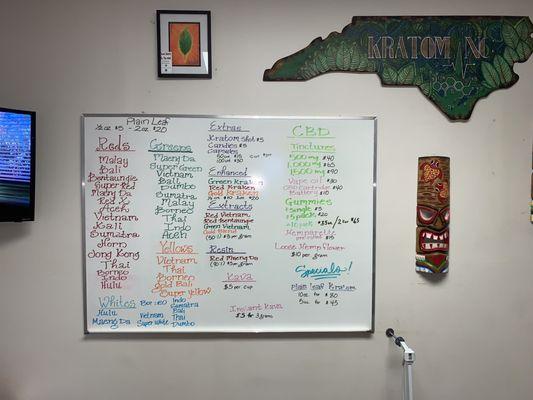 KRATOM NC
Plain Leaf
½oz $5 - 2oz $20
Reds
Malay
Bali
Bentaungie
Super Red
Maeng Da
Red X
Aceh
Vietnam
Kali
Sumatra
Horn
Jong Kong
Thai
Borneo
Indo
Hulu
Whites
Hulu
Maeng Da
Borneo
Vietnam
Super white
Indo
Sumatra
Bali
Thai
Dumbo
Greens
Maeng Da
Super Green
Vietnam
Bali
Dumbo
Sumatra
Malay
Borneo
Thai
Indo
Aceh
Yellows
Vietnam
Thai
Borneo
Gold Bali
Super Yellow
Extras
Kratom Shot $5
Candies $5
Capsules
Enhanced
Green Kraken
Red Kraken
Gold Kraken
Extracts
Red Vietnam
Red Bentaungie
Green Vietnam
Resin
Red Maeng Da
Kava
$5 per Cup
Instant Kava
$5 for 3 grams
CBD
Tinctures
500mg $40
1,000mg $65
1,500mg $90
Vape Oil $30
CBD Cartridge $40
Battery $10
Gummies
Single $5
5 pack $20
10 pack $35 / 2 for $65
Hemparette
Loose Hemp Flower
$10 per gram
Specials!
Plain Leaf Kratom
10oz for $80
5oz for $45